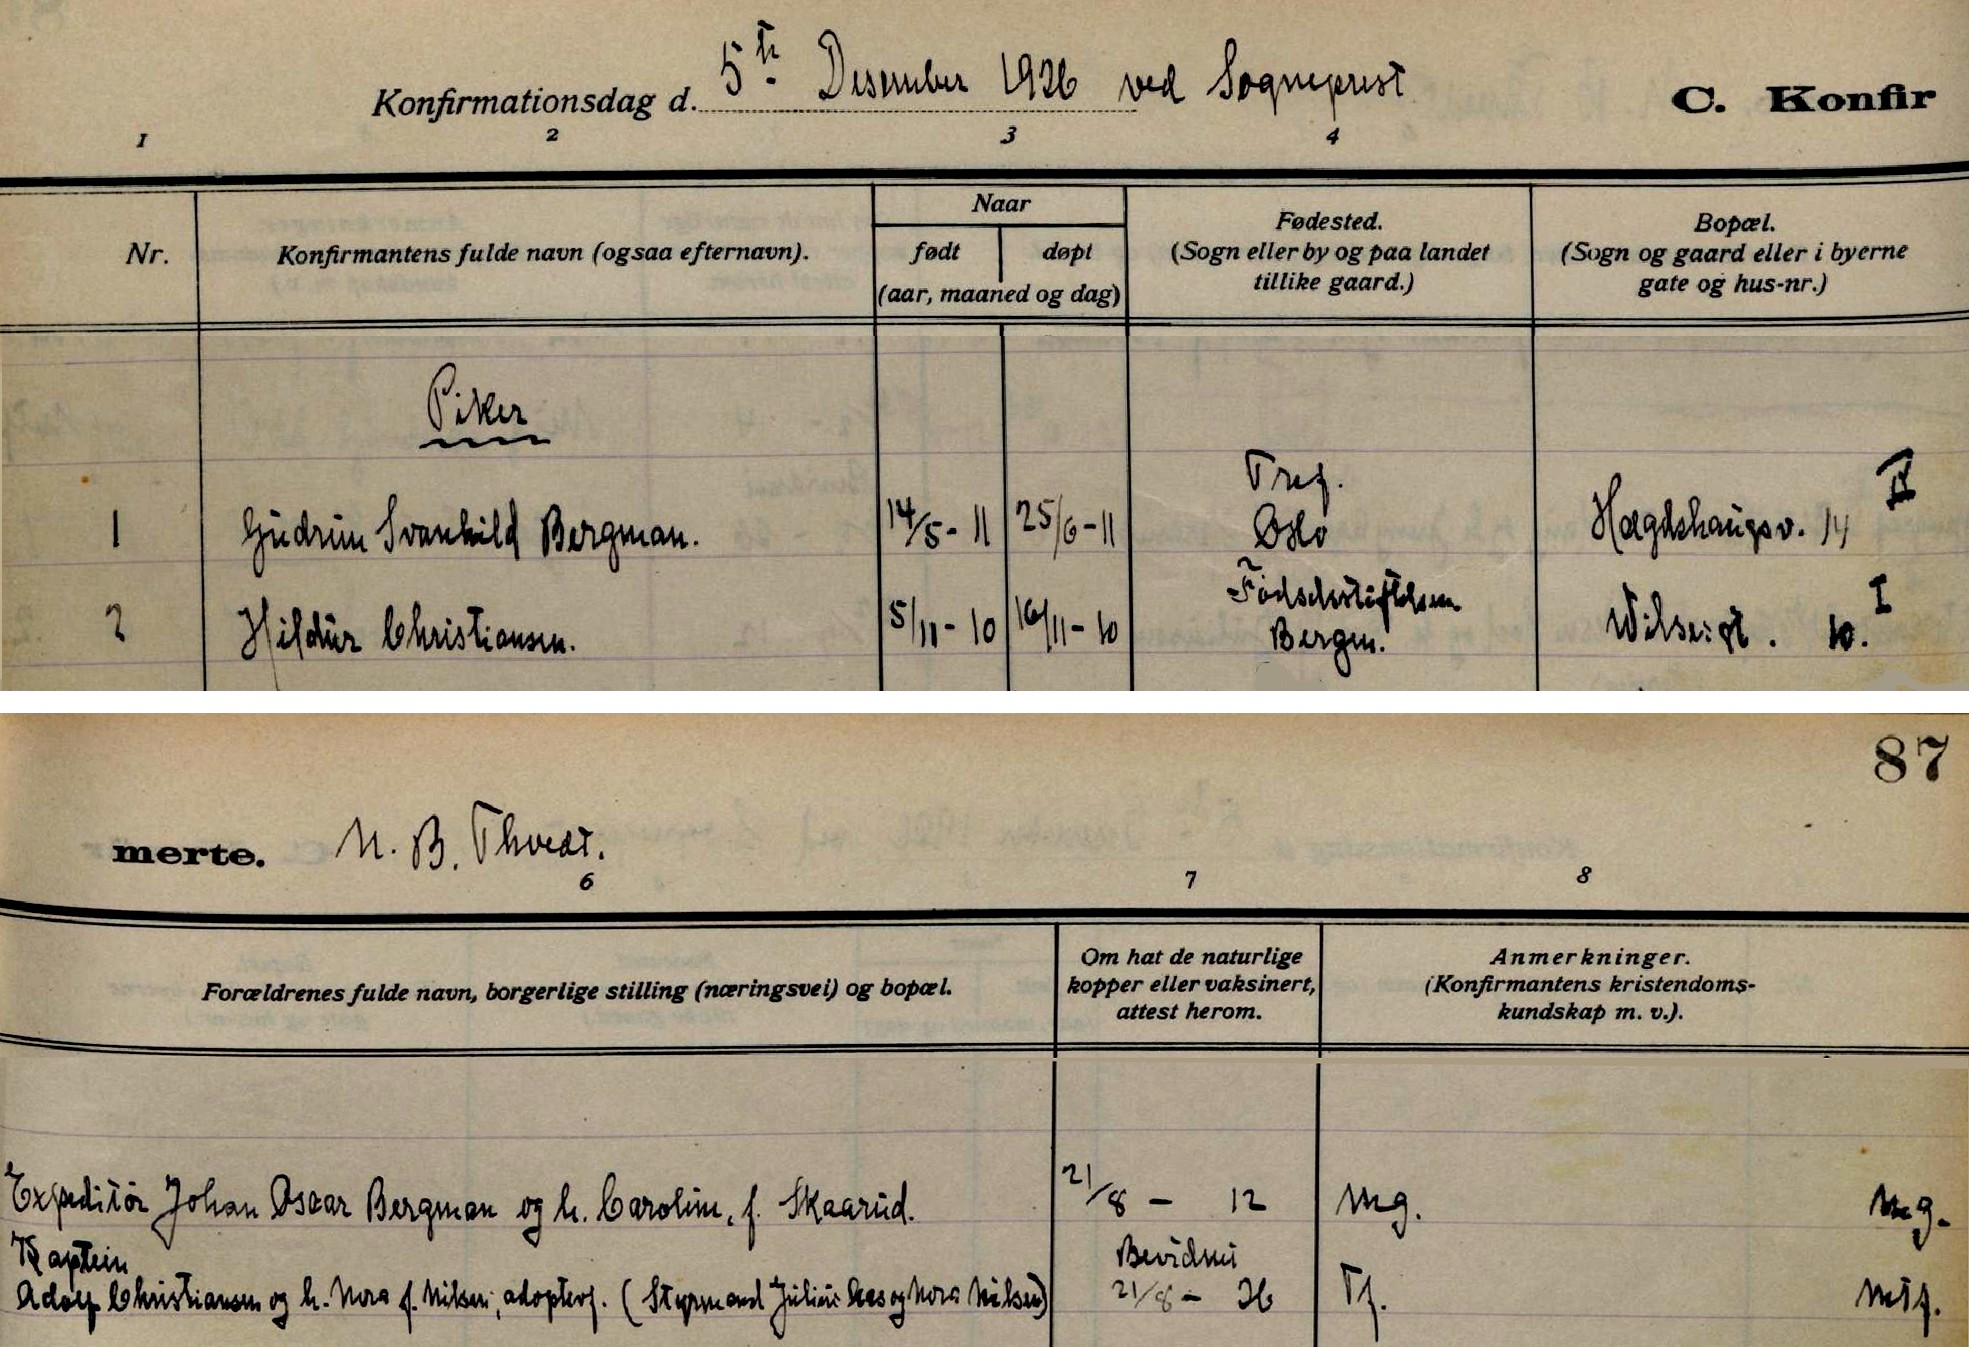 Konfirmationsdag d. 5te Desember 1926 ved Sogneprest
C. Konfir
1 2 3 4
Nr.
Konfirmantens fulde navn (ogsaa efternavn).
Naar
født døpt
(aar, maaned og dag)
Fødested.
(Sogn eller by og paa landet
tillike gaard.)
Bopæl.
(Sogn og gaard eller i byerne
gate og hus-nr.)
Piker
1 Gudrun Svanhild Bergman. 14/5 - 11 25/6 - 11 Tref. Oslo Hægdehaugsv. 14 II
2 Hildur Christiansen. 5/11 - 10 16/11 - 10 Fødselsstiftelsen Bergen. Wilsesgt. 10. I
87
merte. N. B. Thvedt.
6 7 8
Forældrenes fulde navn, borgerlige stilling (næringsvei) og bopæl.
Om hat de naturlige
kopper eller vaksinert,
attest herom.
Anmerkninger.
(Konfirmantens kristendoms-
kundskap m. v.).
Expeditør Johan Oscar Bergman og h. Caroline, f. Skaarud. 21/8 - 12 Mg. Mg.
Kaptein Bevidnet
Adolf Christiansen og h. Nora f. Nilsen, adoptivf. (Styrmand Julius Aas og Nora Nilsen) 21/8 - 26 Tf. Mtf.